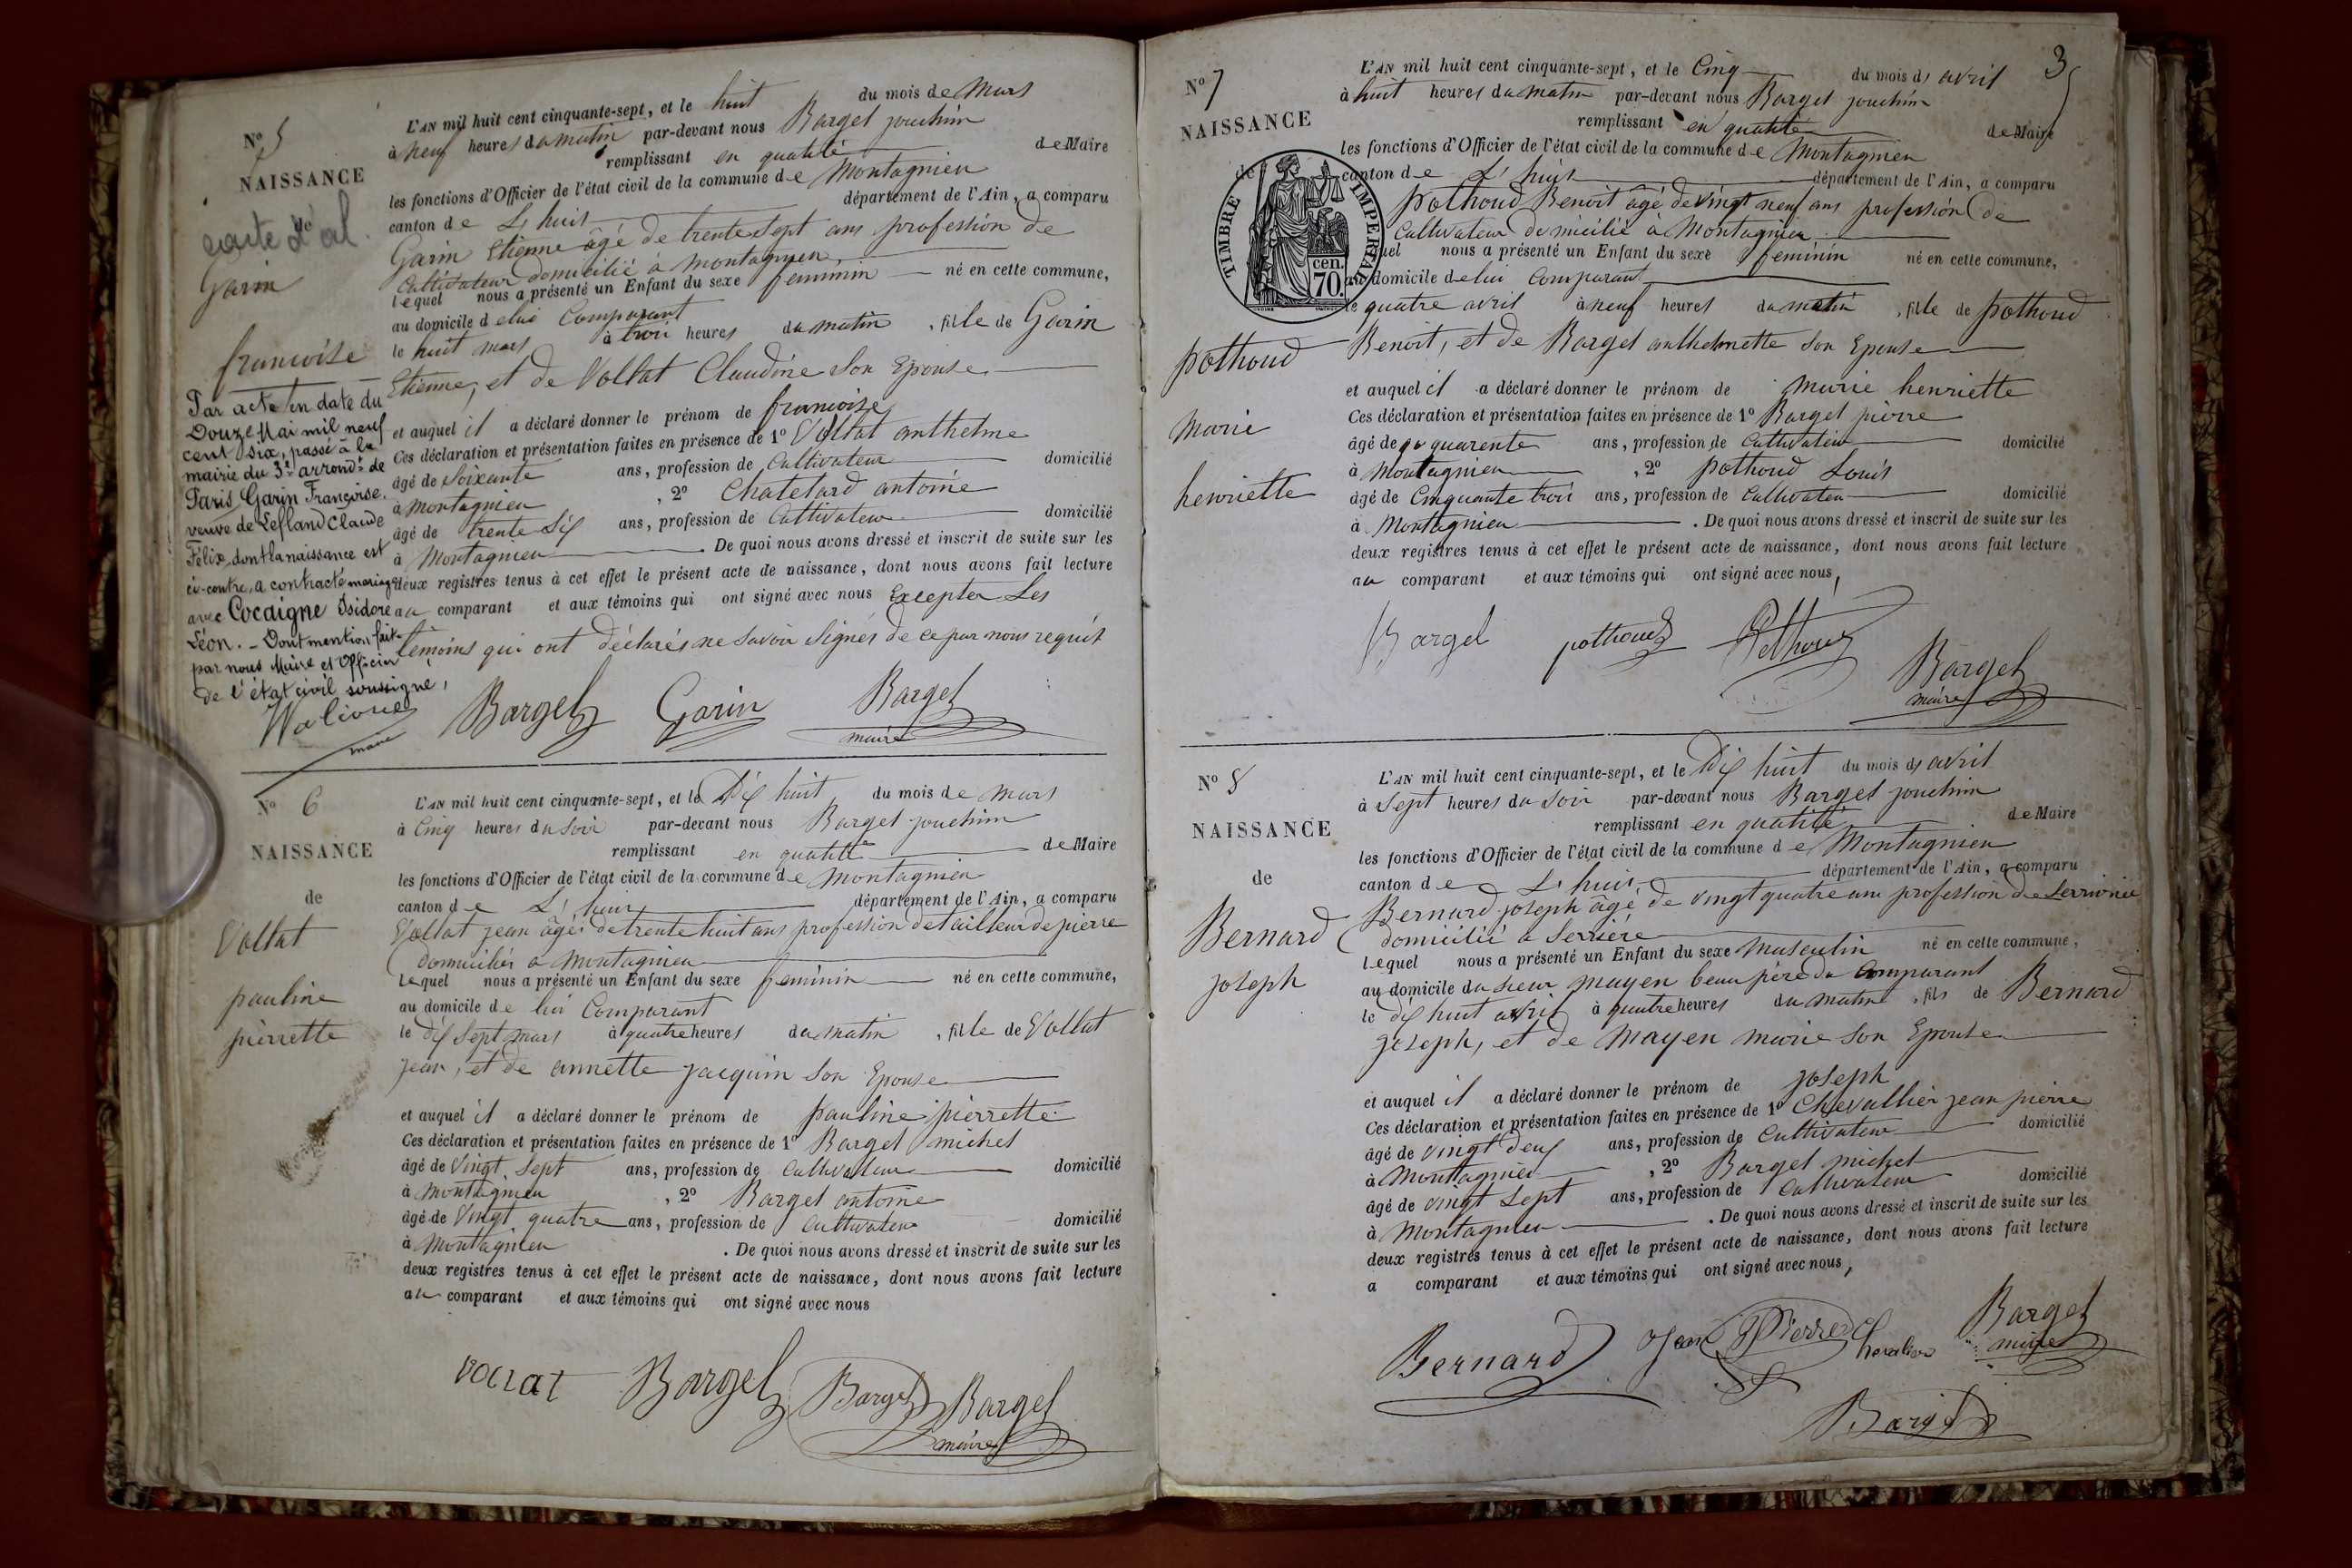 N° 5
NAISSANCE
de
carte d'al.
Garin
francoise
Par acte en date du
Douze Mai mil neuf
cent six, passé à la
mairie du 3e arrondt de
Paris Garin Françoise
veuve de Lefland Claude
Félix, dont la naissance est
ci-contre, a contracté mariage
avec Cocaigne Isidore
Léon. - Dont mention faite
par nous Maire et Officier
de l'état civil soussigné,
maire
L'AN mil huit cent cinquante-sept, et le huit du mois de Mars
à neuf heures du matin par-devant nous Bargel jouchim
remplissant en qualité de Maire
les fonctions d'Officier de l'état civil de la commune de Montagnieu
canton de L'huis département de l'Ain, a comparu
Garin Etienne âgé de trente sept ans profession de
Cultivateur domicilié à montagnieu,
lequel nous a présenté un Enfant du sexe feminin né en cette commune,
au domicile de lui Comparant
le huit mars à trois heures du matin, fille de Garin
Etienne, et de Vollat Claudine son Epouse
et auquel il a déclaré donner le prénom de francoise
Ces déclaration et présentation faites en présence de 1° Vollat anthelme
âgé de soixante ans, profession de Cultivateur domicilié
à montagnieu, 2° Chatelard antoine
âgé de trente six ans, profession de Cultivateur domicilié
à Montagnieu. De quoi nous avons dressé et inscrit de suite sur les
deux registres tenus à cet effet le présent acte de naissance, dont nous avons fait lecture
au comparant et aux témoins qui ont signé avec nous Excepter Les
témoins qui ont déclarés ne savoir signés de ce par nous requis
Bargel Garin Bargel
maire
N° 6
NAISSANCE
de
Vollat
pauline
pierrette
L'AN mil huit cent cinquante-sept, et le Dix huit du mois de Mars
à Cinq heures du soir par-devant nous Bargel jouchim
remplissant en qualité de Maire
les fonctions d'Officier de l'état civil de la commune de Montagnieu
canton de L'huis département de l'Ain, a comparu
Vollat jean âgés de trente huit ans profession de tailleur de pierre
domiciliés a montagnieu
lequel nous a présenté un Enfant du sexe feminin né en cette commune,
au domicile de lui Comparant
le dix sept mars à quatre heures du matin, fille de Vollat
jean, et de annette jacquin son Epouse
et auquel il a déclaré donner le prénom de pauline pierrette
Ces déclaration et présentation faites en présence de 1° Bargel michel
âgé de Vingt sept ans, profession de Cultivateur domicilié
à montagnieu, 2° Bargel antoine
âgé de Vingt quatre ans, profession de Cultivateur domicilié
à Montagnieu. De quoi nous avons dressé et inscrit de suite sur les
deux registres tenus à cet effet le présent acte de naissance, dont nous avons fait lecture
au comparant et aux témoins qui ont signé avec nous
Bargel Bargel Bargel
maire
3
N° 7
NAISSANCE
de
TIMBRE IMPERIAL
70 cen.
pothoud
Marie
henriette
L'AN mil huit cent cinquante-sept, et le Cinq du mois de avril
à huit heures du matin par-devant nous Bargel jouchim
remplissant en qualité de Maire
les fonctions d'Officier de l'état civil de la commune de Montagnieu
canton de L'huis département de l'Ain, a comparu
pothoud Benoit âgé de vingt neuf ans profession de
Cultivateur domicilié à Montagnieu
lequel nous a présenté un Enfant du sexe feminin né en cette commune,
au domicile de lui Comparant
le quatre avril à neuf heures du matin, fille de pothoud
Benoit, et de Bargel anthelmette son Epouse
et auquel il a déclaré donner le prénom de marie henriette
Ces déclaration et présentation faites en présence de 1° Bargel pierre
âgé de quarente ans, profession de Cultivateur domicilié
à Montagnieu, 2° pothoud Louis
âgé de Cinquante trois ans, profession de Cultivateur domicilié
à Montagnieu. De quoi nous avons dressé et inscrit de suite sur les
deux registres tenus à cet effet le présent acte de naissance, dont nous avons fait lecture
au comparant et aux témoins qui ont signé avec nous,
Bargel pothoud Pothoud Bargel
maire
N° 8
NAISSANCE
de
Bernard
joseph
L'AN mil huit cent cinquante-sept, et le Dix huit du mois de avril
à Sept heures du soir par-devant nous Bargel jouchim
remplissant en qualité de Maire
les fonctions d'Officier de l'état civil de la commune de Montagnieu
canton de L'huis département de l'Ain, a comparu
Bernard joseph âgé de vingt quatre ans profession de
domicilié a Serriére
lequel nous a présenté un Enfant du sexe Masculin né en cette commune,
au domicile du sieur mayen beau père du Comparant
le dix huit avril à quatre heures du matin, fils de Bernard
joseph, et de Mayen marie son Epouse
et auquel il a déclaré donner le prénom de joseph
Ces déclaration et présentation faites en présence de 1° Chevallier jean pierre
âgé de vingt deux ans, profession de Cultivateur domicilié
à Montagnieu, 2° Bargel michel
âgé de vingt sept ans, profession de Cultivateur domicilié
à Montagnieu. De quoi nous avons dressé et inscrit de suite sur les
deux registres tenus à cet effet le présent acte de naissance, dont nous avons fait lecture
a comparant et aux témoins qui ont signé avec nous,
Bernard Jean Pierre Chevalier Bargel
maire
Bargel